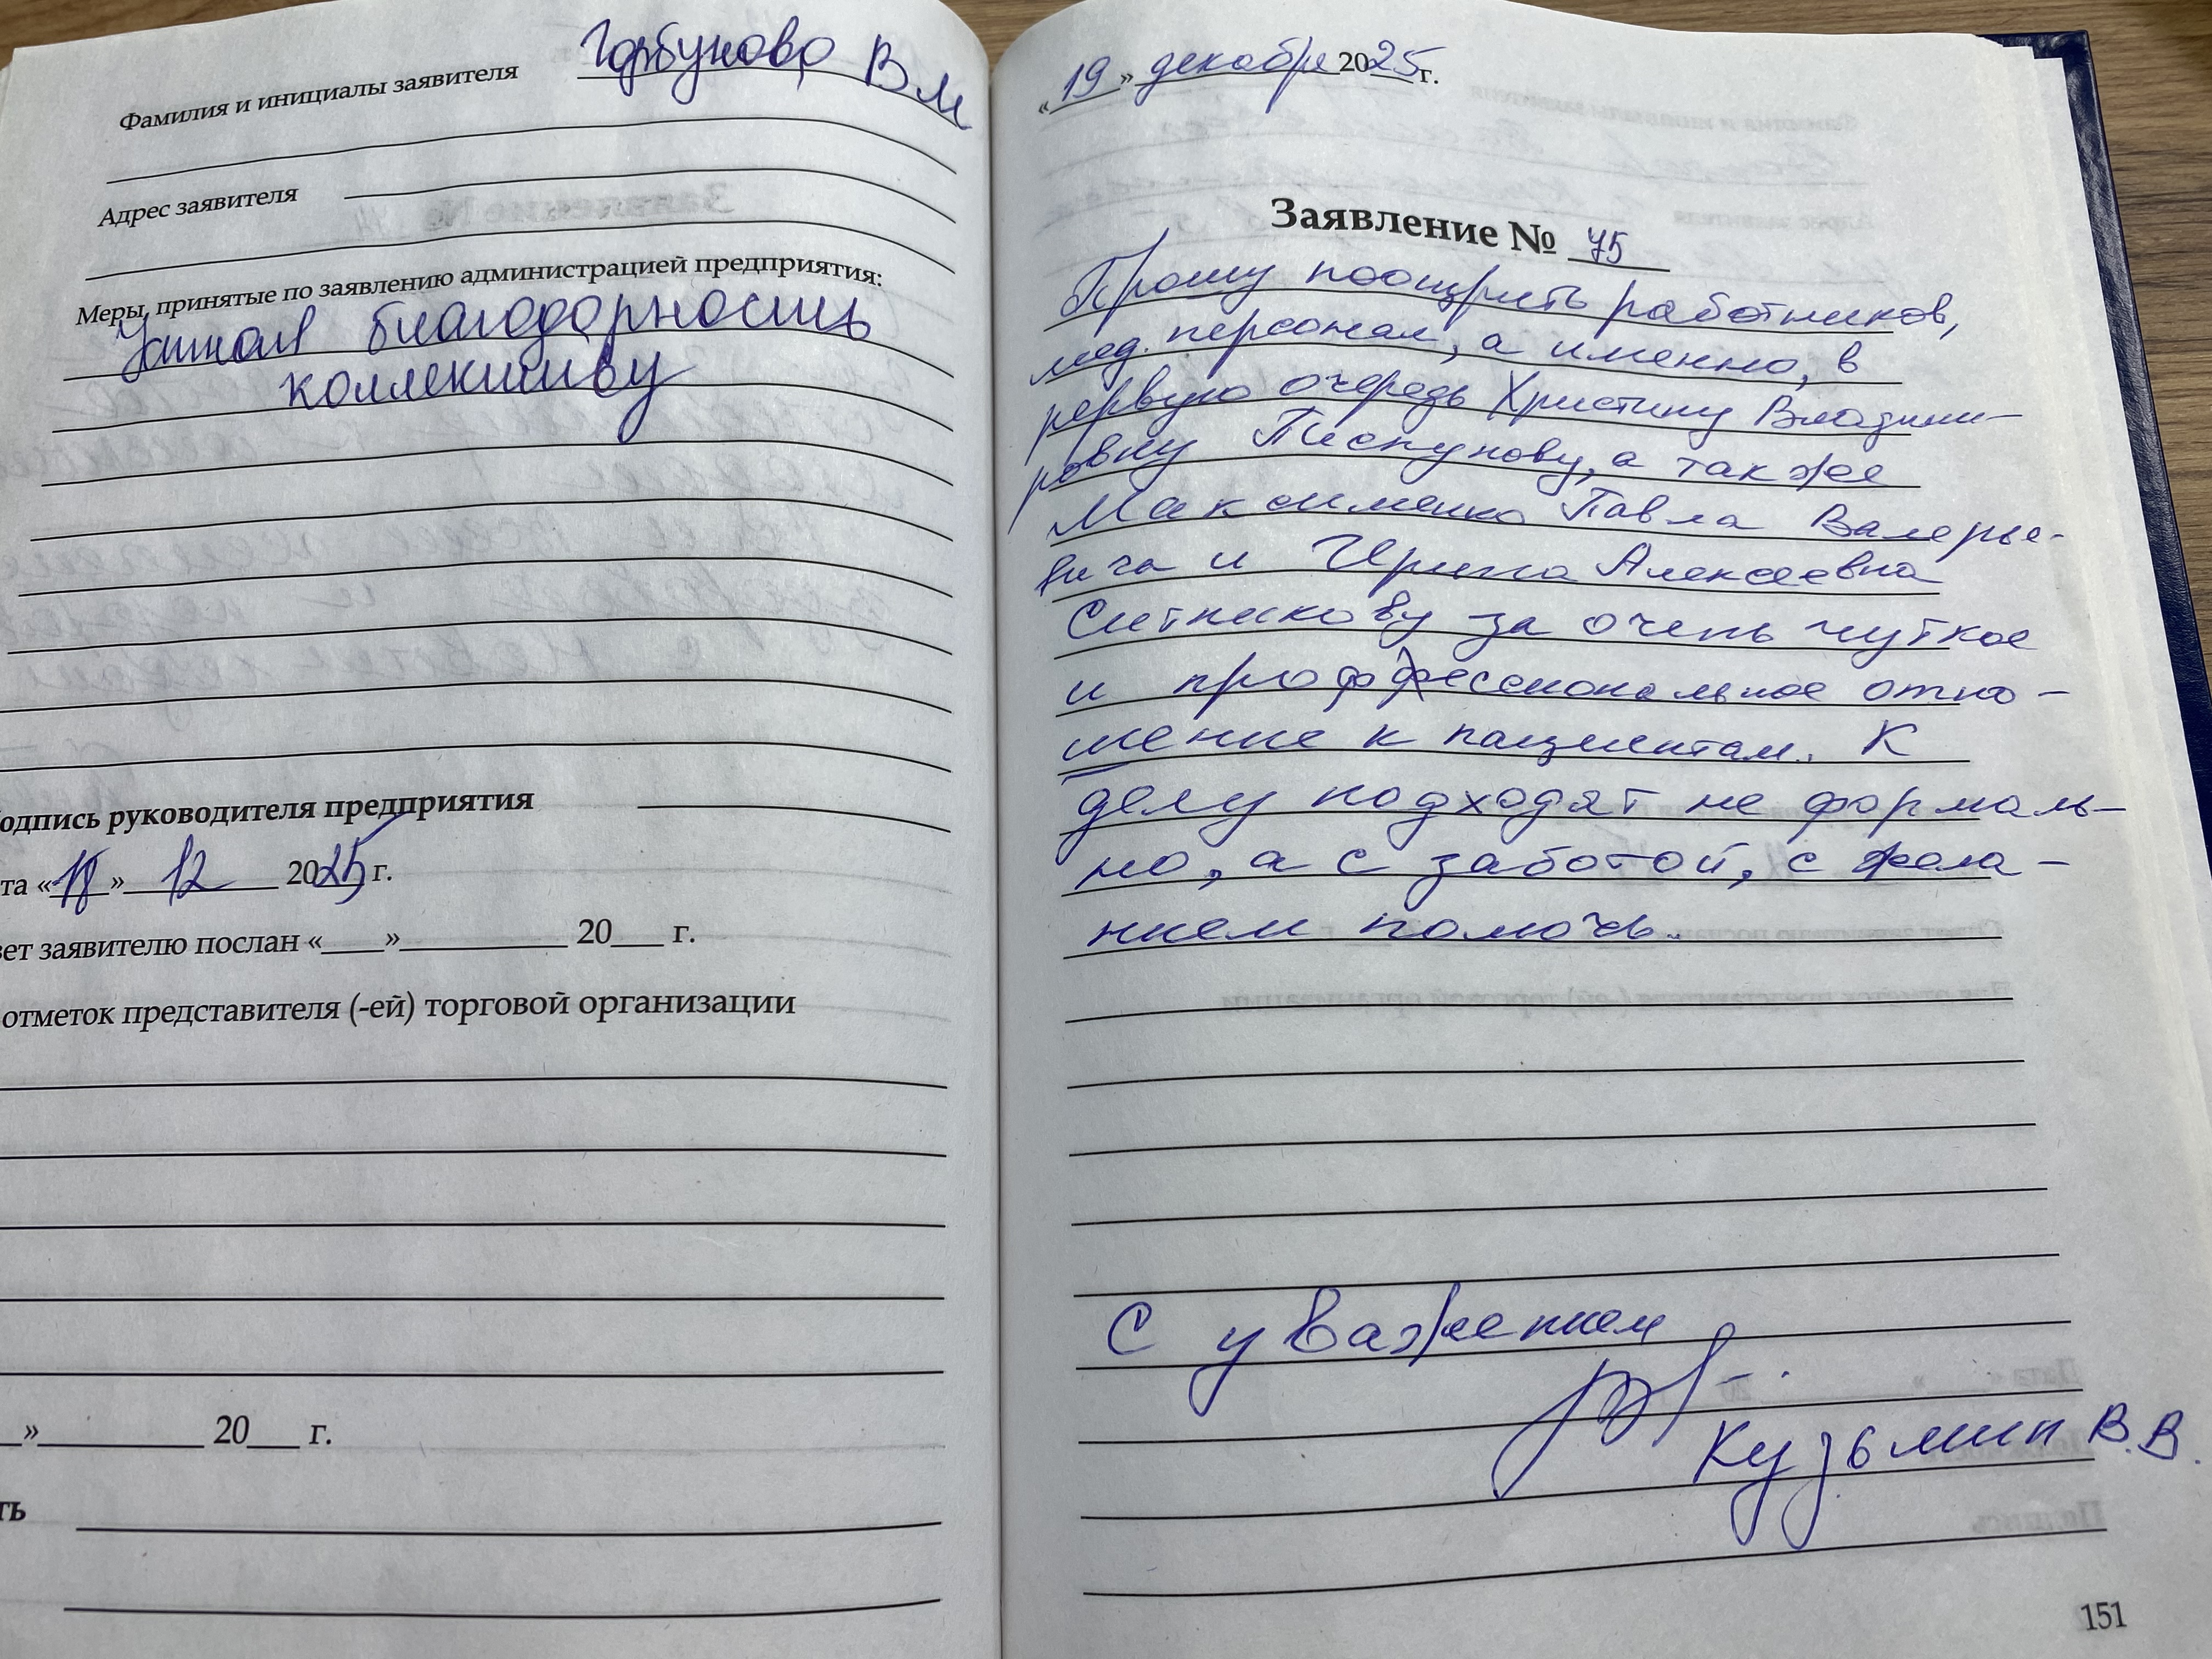 Фамилия и инициалы заявителя Горбунова В М
Адрес заявителя
Меры, принятые по заявлению администрацией предприятия:
Устная благодарность
коллективу
одпись руководителя предприятия
та «18» 12 2025 г.
вет заявителю послан «___»__________ 20___ г.
отметок представителя (-ей) торговой организации
»__________ 20___ г.
ть
«19» декабря 2025 г.
Заявление № 75
Прошу поощрить работников,
мед. персонал, а именно, в
первую очередь Христину Владими-
ровну Пискунову, а также
Максименко Павла Валерье-
вича и Ирина Алексеевна
Ситникову за очень чуткое
и проффессиональное отно-
шение к пациентам. К
делу подходят не формаль-
но, а с заботой, с жела-
нием помочь.
С уважением
Кузьмин В.В.
151